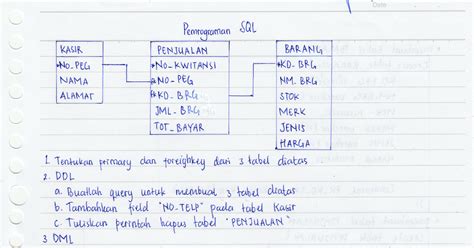 Pemrograman SQL
KASIR PENJUALAN BARANG
*NO_PEG *NO_KWITANSI *KD_BRG
NAMA *NO_PEG NM_BRG
ALAMAT *KD_BRG STOK
JML_BRG MERK
TOT_BAYAR JENIS
HARGA
1. Tentukan primary dan foreighkey dari 3 tabel diatas
2. DDL
a. Buatlah query untuk membuat 3 tabel diatas
b. Tambahkan field "NO_TELP" pada tabel Kasir
c. Tuliskan perintah hapus tabel "PENJUALAN"
3 DML